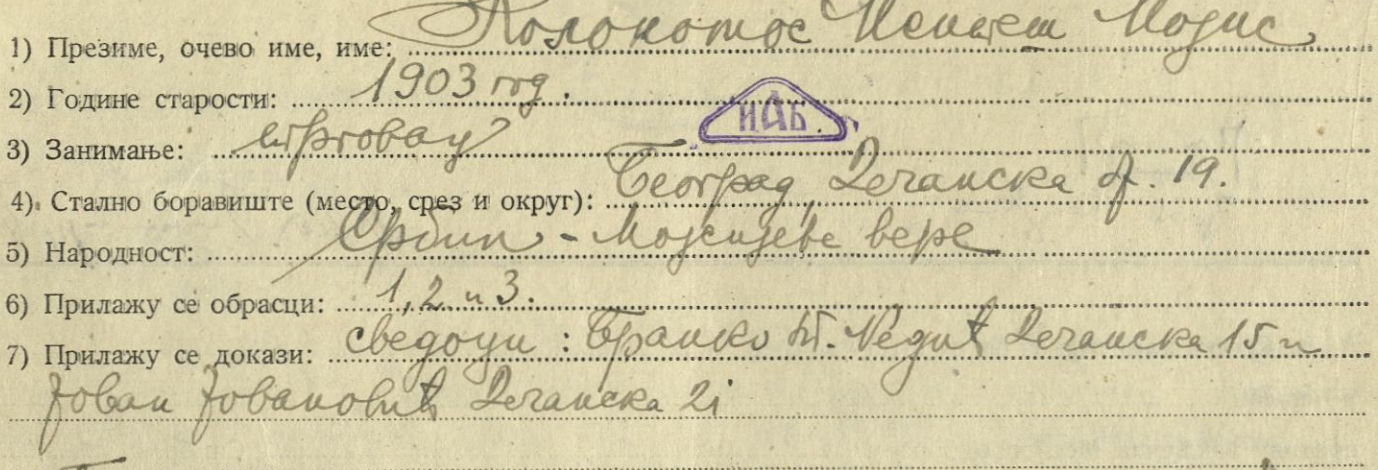 1) Презиме, очево име, име: Колокотос Мојис
2) Године старости: 1903 год.
ИАБ
3) Занимање: трговац
4) Стално боравиште (место, срез и округ): Београд Дечанска бр. 19.
5) Народност: Србин - Мојсијеве вере
6) Прилажу се обрасци: 1, 2 и 3.
7) Прилажу се докази: сведоци: Бранко Недић Дечанска 15 и
Јован Јовановић Дечанска 21